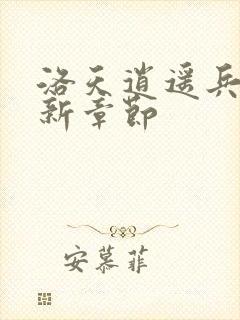 洛天逍遥兵
新章节
安慕菲